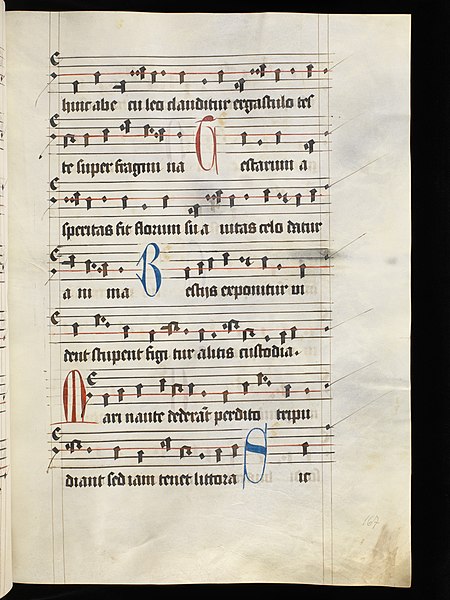 hinc abe cu leo clauditur ergastulo tes
te super fragmi na Testarum a
speritas fit florum su a uitas celo datur
a ni ma Bestijs exponitur vi
dent stupent figi tur alitis custodia.
Mari naute dederat perdito tripu
diant sed iam tenet littora Sic
167